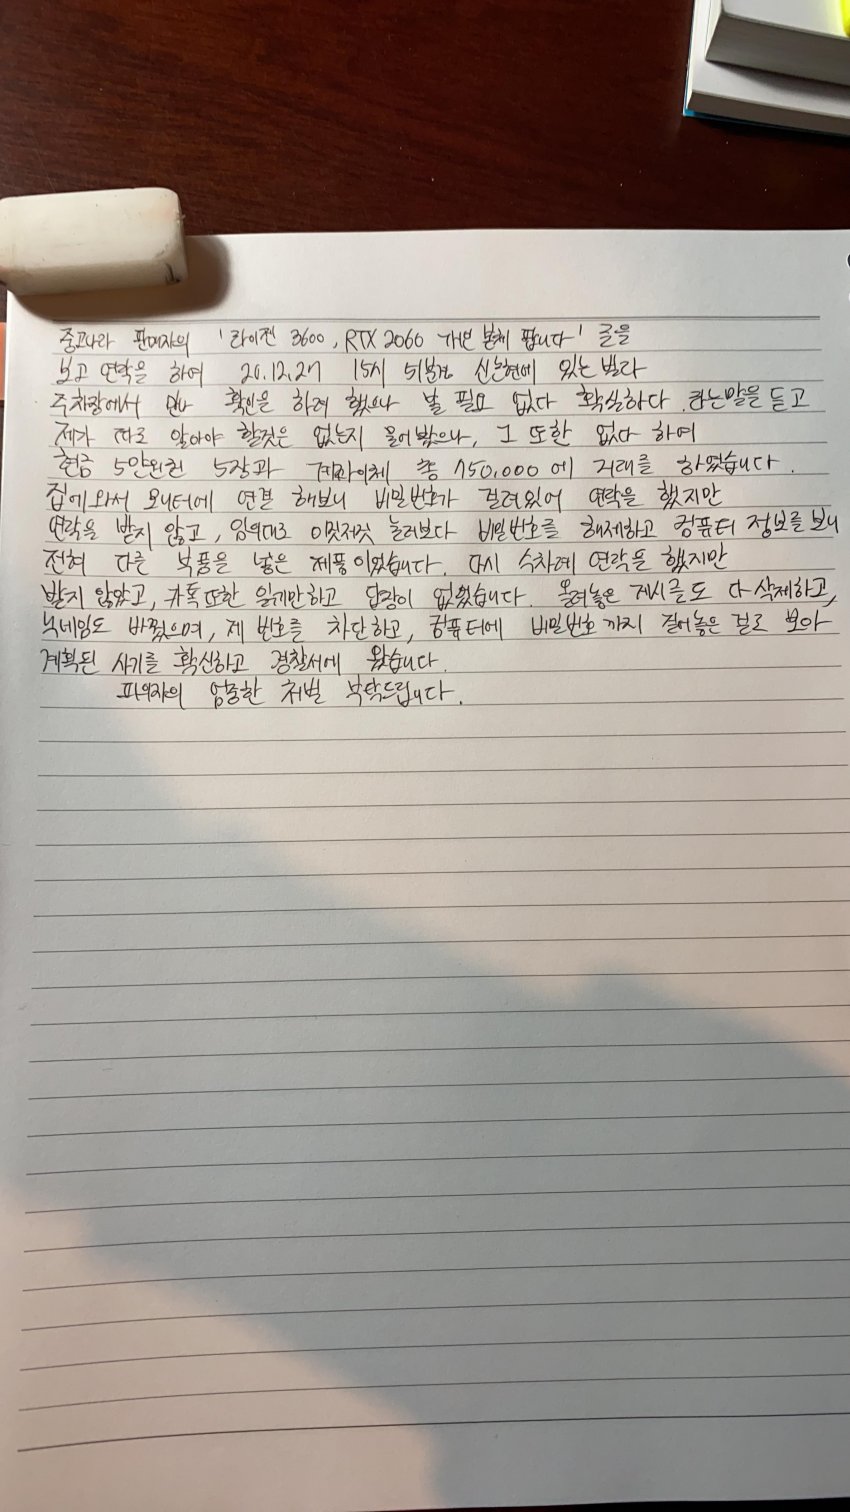 중고나라 판매자의 '라이젠 3600, RTX 2060 개인 본체 팝니다' 글을
보고 연락을 하여 20.12.27 15시 신논현에 있는 빌라
주차장에서 만나 확인을 하려 했으나 볼 필요 없다 확실하다 라는말을 듣고
제가 따로 알아야 할것은 없는지 물어봤으나, 그 또한 없다 하여
현금 5만원권 5장과 계좌이체 총 750,000에 거래를 하였습니다.
집에와서 모니터에 연결 해보니 비밀번호가 걸려있어 연락을 했지만
연락을 받지 않고, 임의대로 이것저것 눌러보다 비밀번호를 해제하고 컴퓨터 정보를 보니
전혀 다른 부품을 넣은 제품이었습니다. 다시 수차례 연락을 했지만
받지 않았고, 카톡또한 읽기만하고 답장이 없었습니다. 올려놓은 게시글도 다 삭제하고,
닉네임도 바꿨으며, 제 번호를 차단하고, 컴퓨터에 비밀번호까지 걸어놓은 걸로 보아
계획된 사기를 확신하고 경찰서에 왔습니다.
피의자의 엄중한 처벌 부탁드립니다.